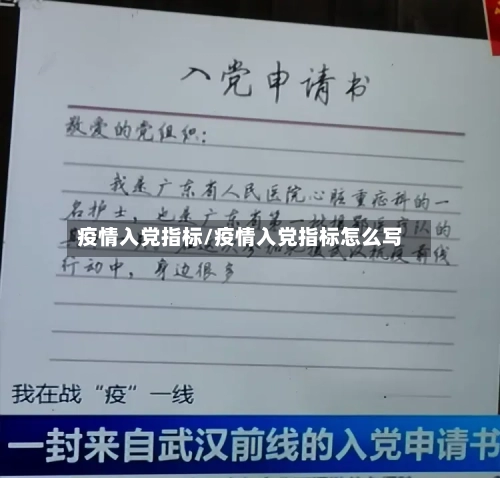 入党申请书
敬爱的党组织：
我是广东省人民医院心脏重症科的一
名护士，也是广东省第一批援鄂医疗队的
疫情入党指标/疫情入党指标怎么写
行动中，身边很多
我在战“疫”一线
一封来自武汉前线的入党申请书